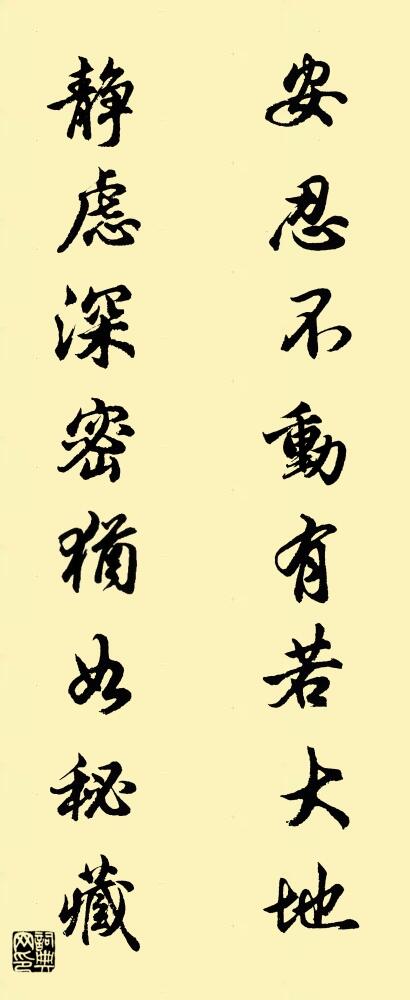 安忍不動有若大地
静慮深密猶如秘藏
詞典網印